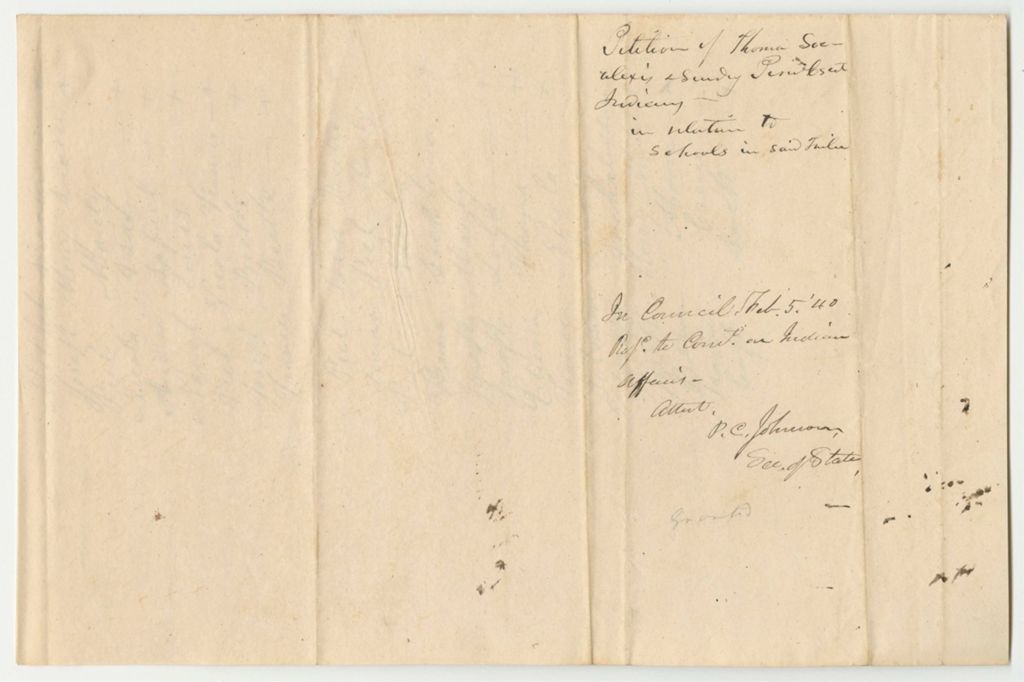 Petition of Thomas Soc-
alexis & Sundry Penobscot
Indians —
in relation to
Schools in said Tribe
In Council, Feb. 5. '40
Ref. to Comt. on Indian
Affairs —
Attest,
P. C. Johnson,
Sec. of State
Granted